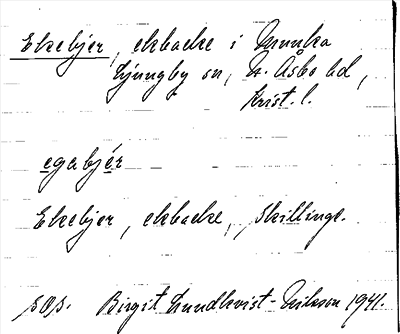 Ekebjer, ekbacke i Munka
Ljungby sn, N. Åsbo hd,
Krist. l.
egabjér
Ekebjer, ekbacke, skillinge.
sOp. Birgit Lundkvist-Nilsson 1941.